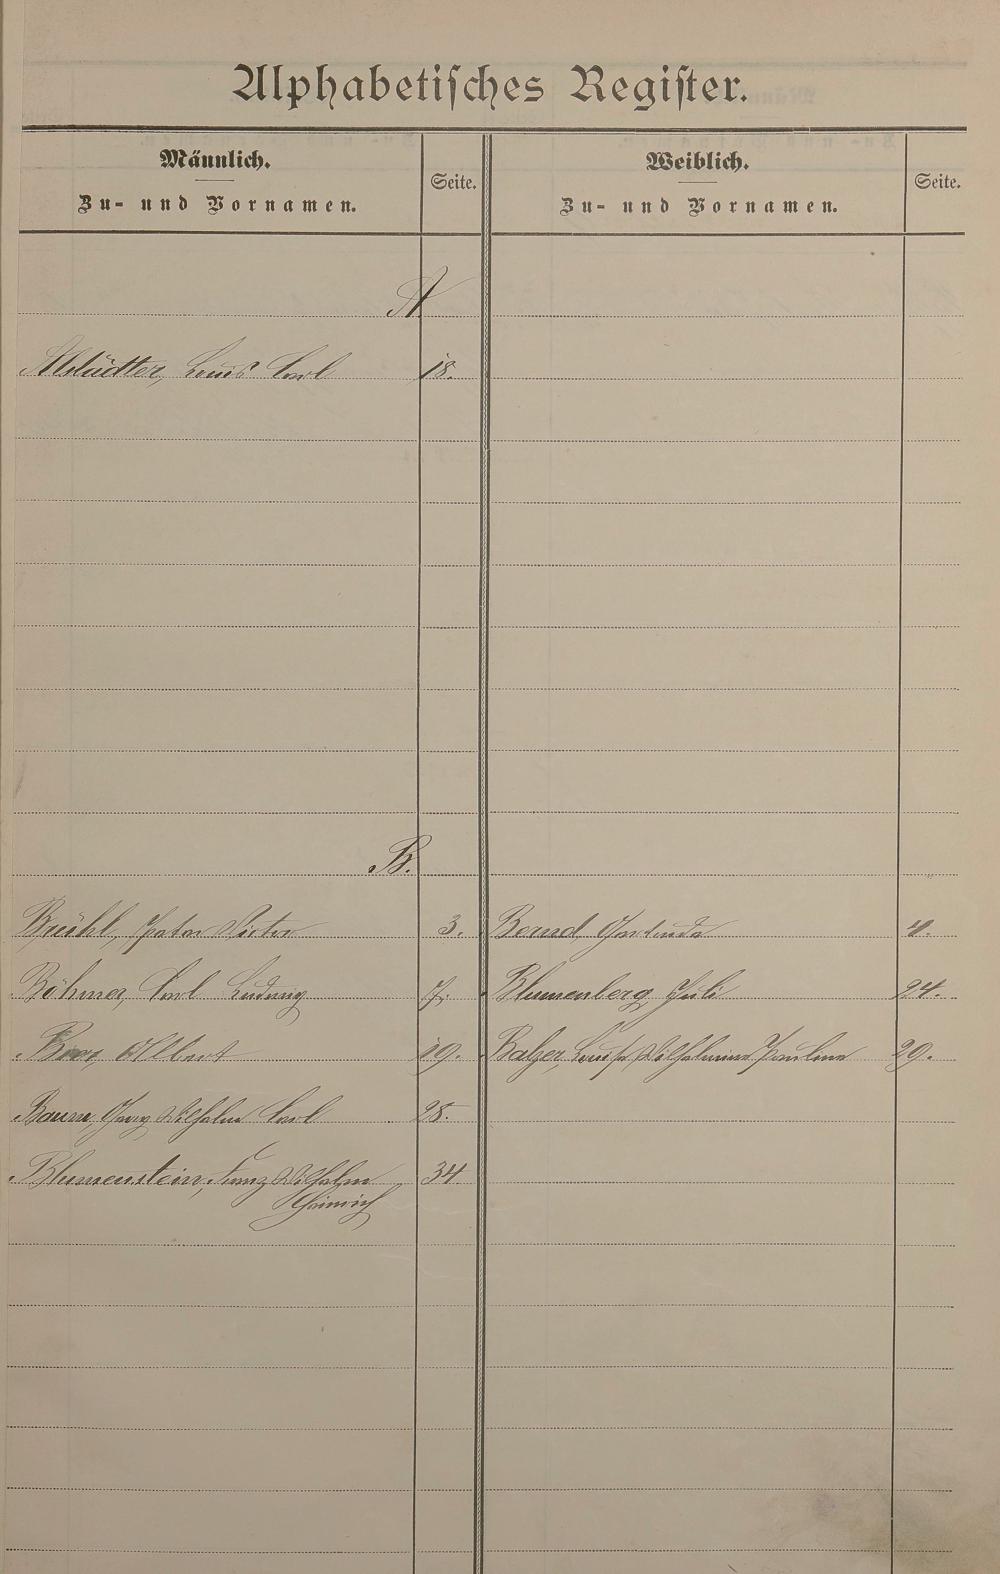 Alphabetisches Register.
Männlich.
Zu- und Vornamen.
Seite.
Weiblich.
Zu- und Vornamen.
Seite.
A
Louis Carl 18.
B.
Brühl, Peter Victor 3. Bernd, Gertrude 4.
Böhmer, Carl Ludwig 7. Blumenberg, Juli 24.
Albert 19. Balzer, Louise Wilhelmine Pauline 29.
Baum, Georg Wilhelm Carl 28.
Blumenstein, Franz Wilhelm 34
Heinrich